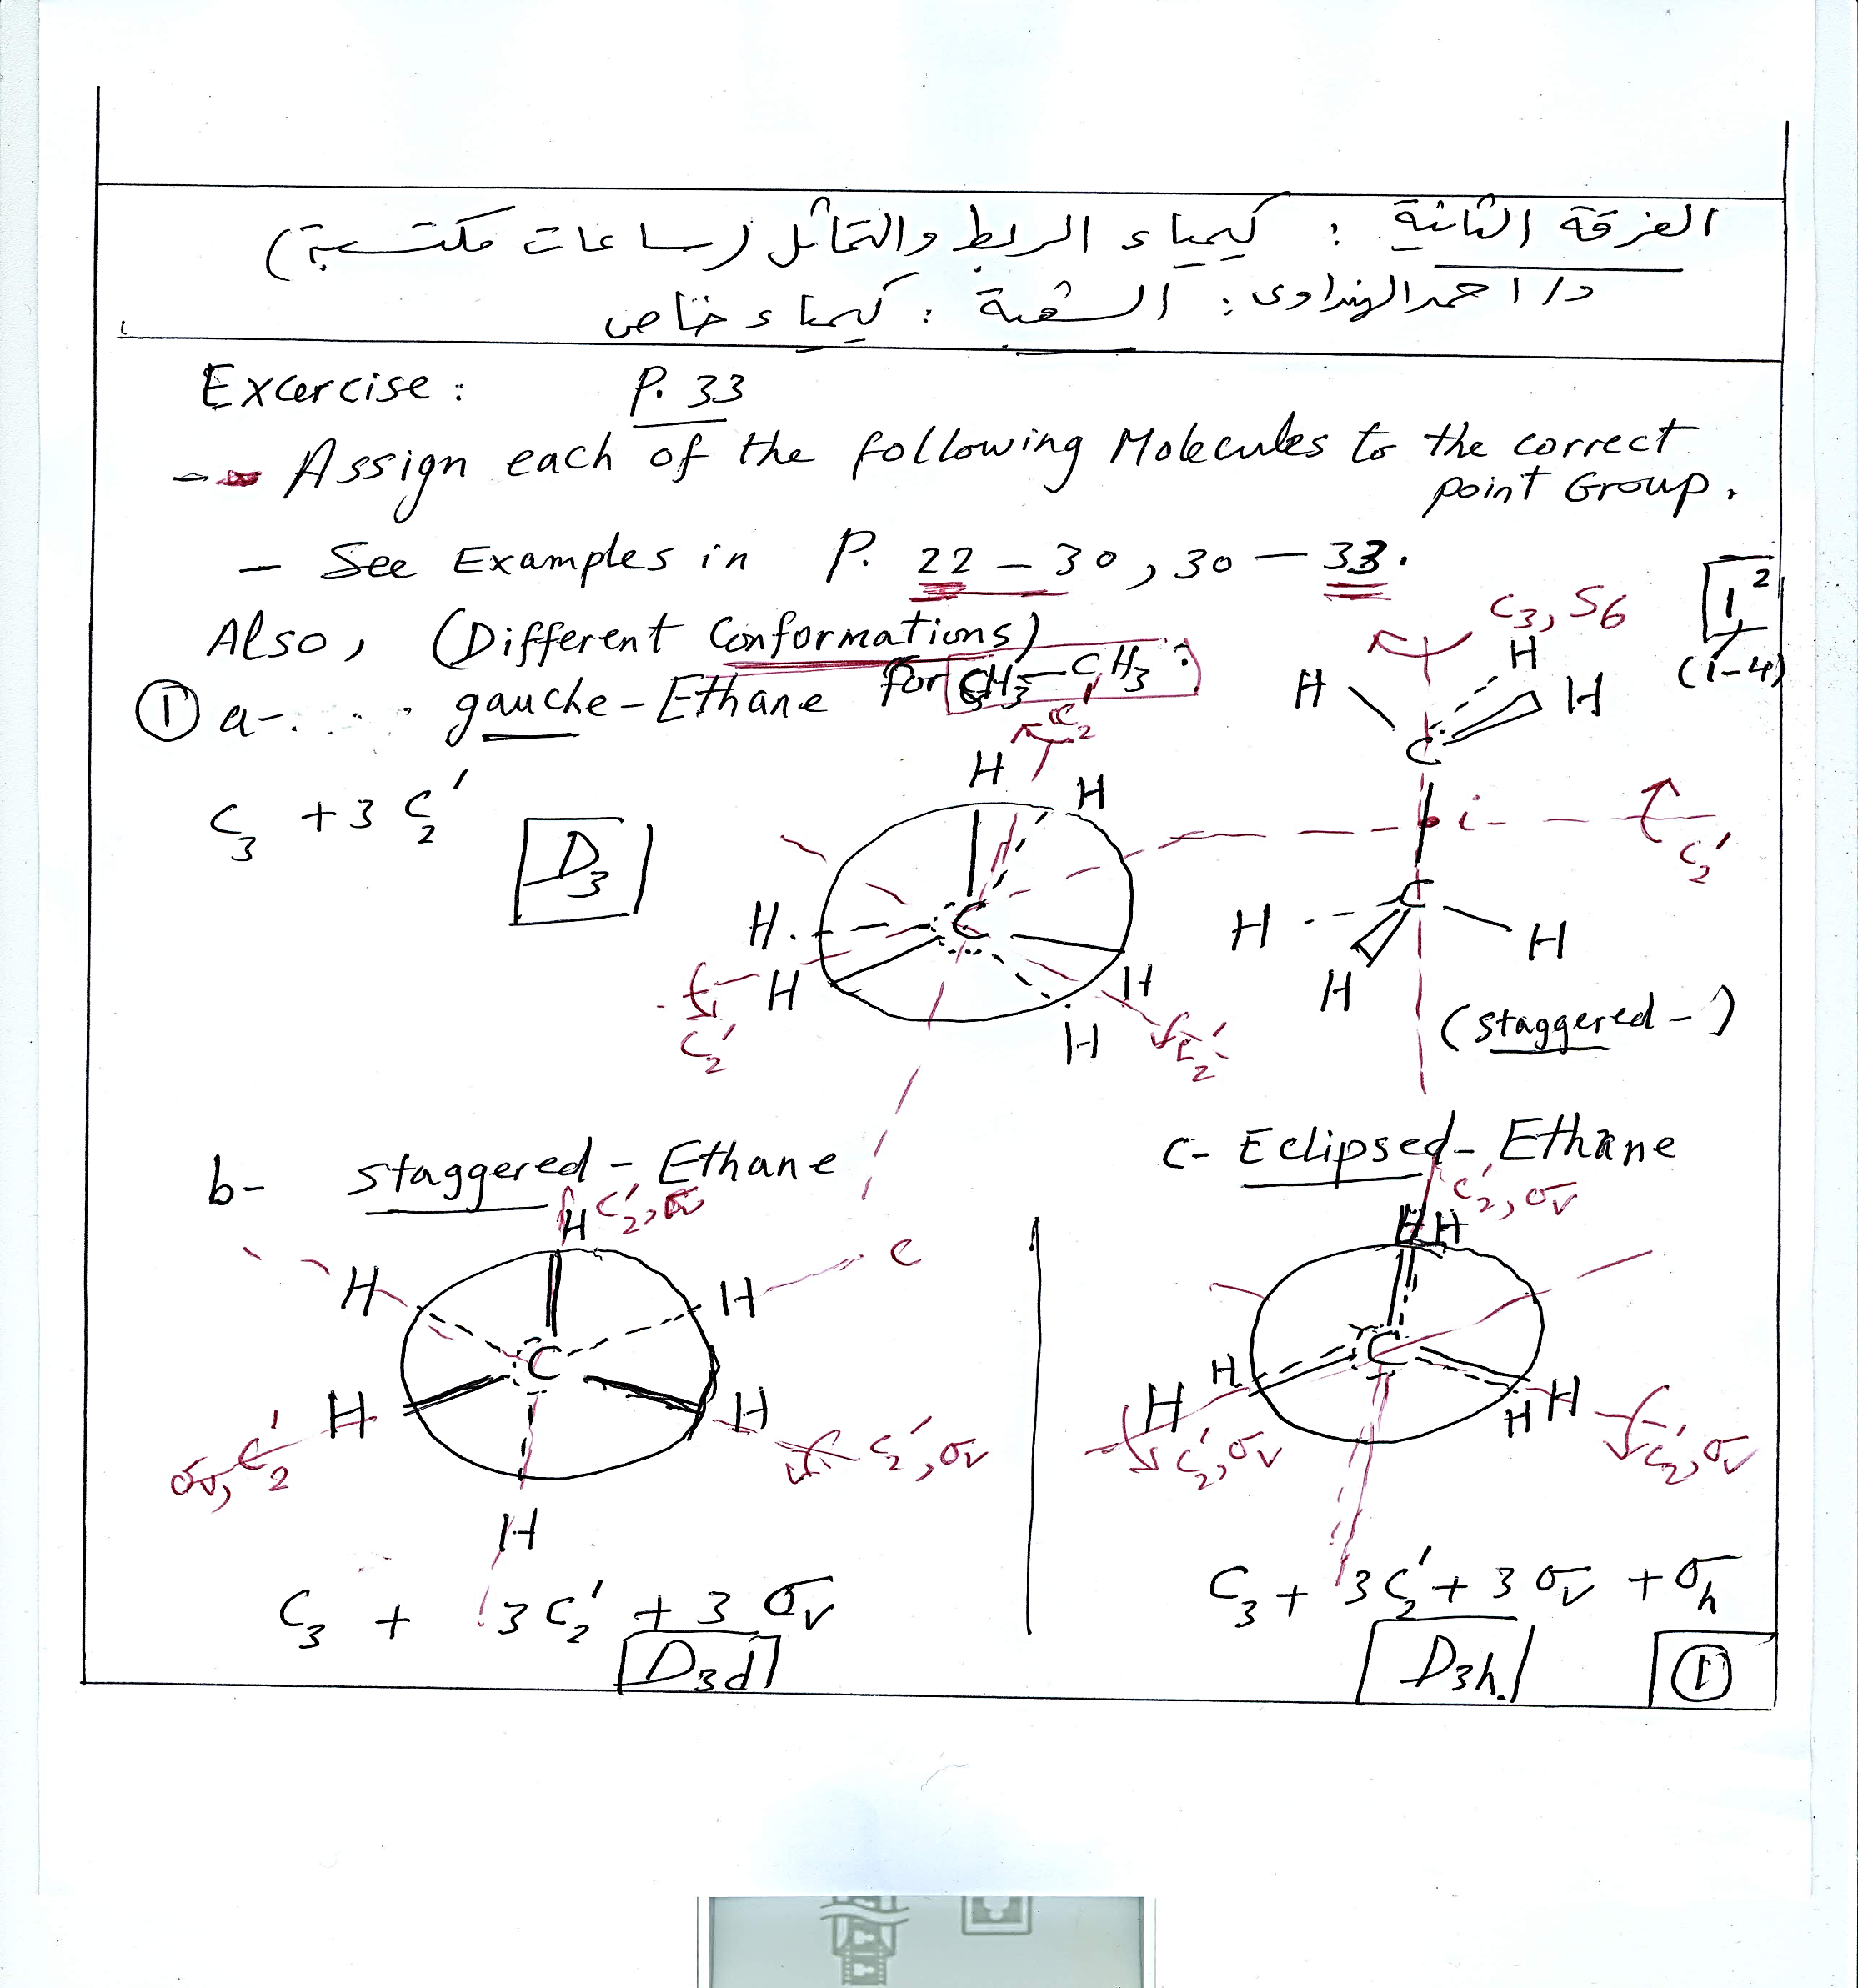 الفرقة الثانية : كيمياء الربط والتماثل (ساعات مكتسبة)
د/ احمد الهنداوى : الشعبة : كيمياء خاص
Excercise : P. 33
- Assign each of the following Molecules to the correct
point Group.
- See Examples in P. 22 - 30, 30 - 33.
Also, (Different Conformations)
for CH3-CH3:
① a-.... gauche-Ethane
1 2
(1-4)
C3, S6
H H H
C
i
C2'
C
H H
H
(staggered-)
C3 + 3 C2'
D3
C2'
H H
H. C
H H
H
C2' C2'
b- staggered-Ethane
C2', σv
H
H H
C
H H
σv, C2' C2', σv
H
C3 + 3 C2' + 3 σv
D3d
c- Eclipsed-Ethane
C2', σv
H H
C
H H H H
C2', σv C2', σv
C3 + 3 C2' + 3 σv + σh
D3h.
①